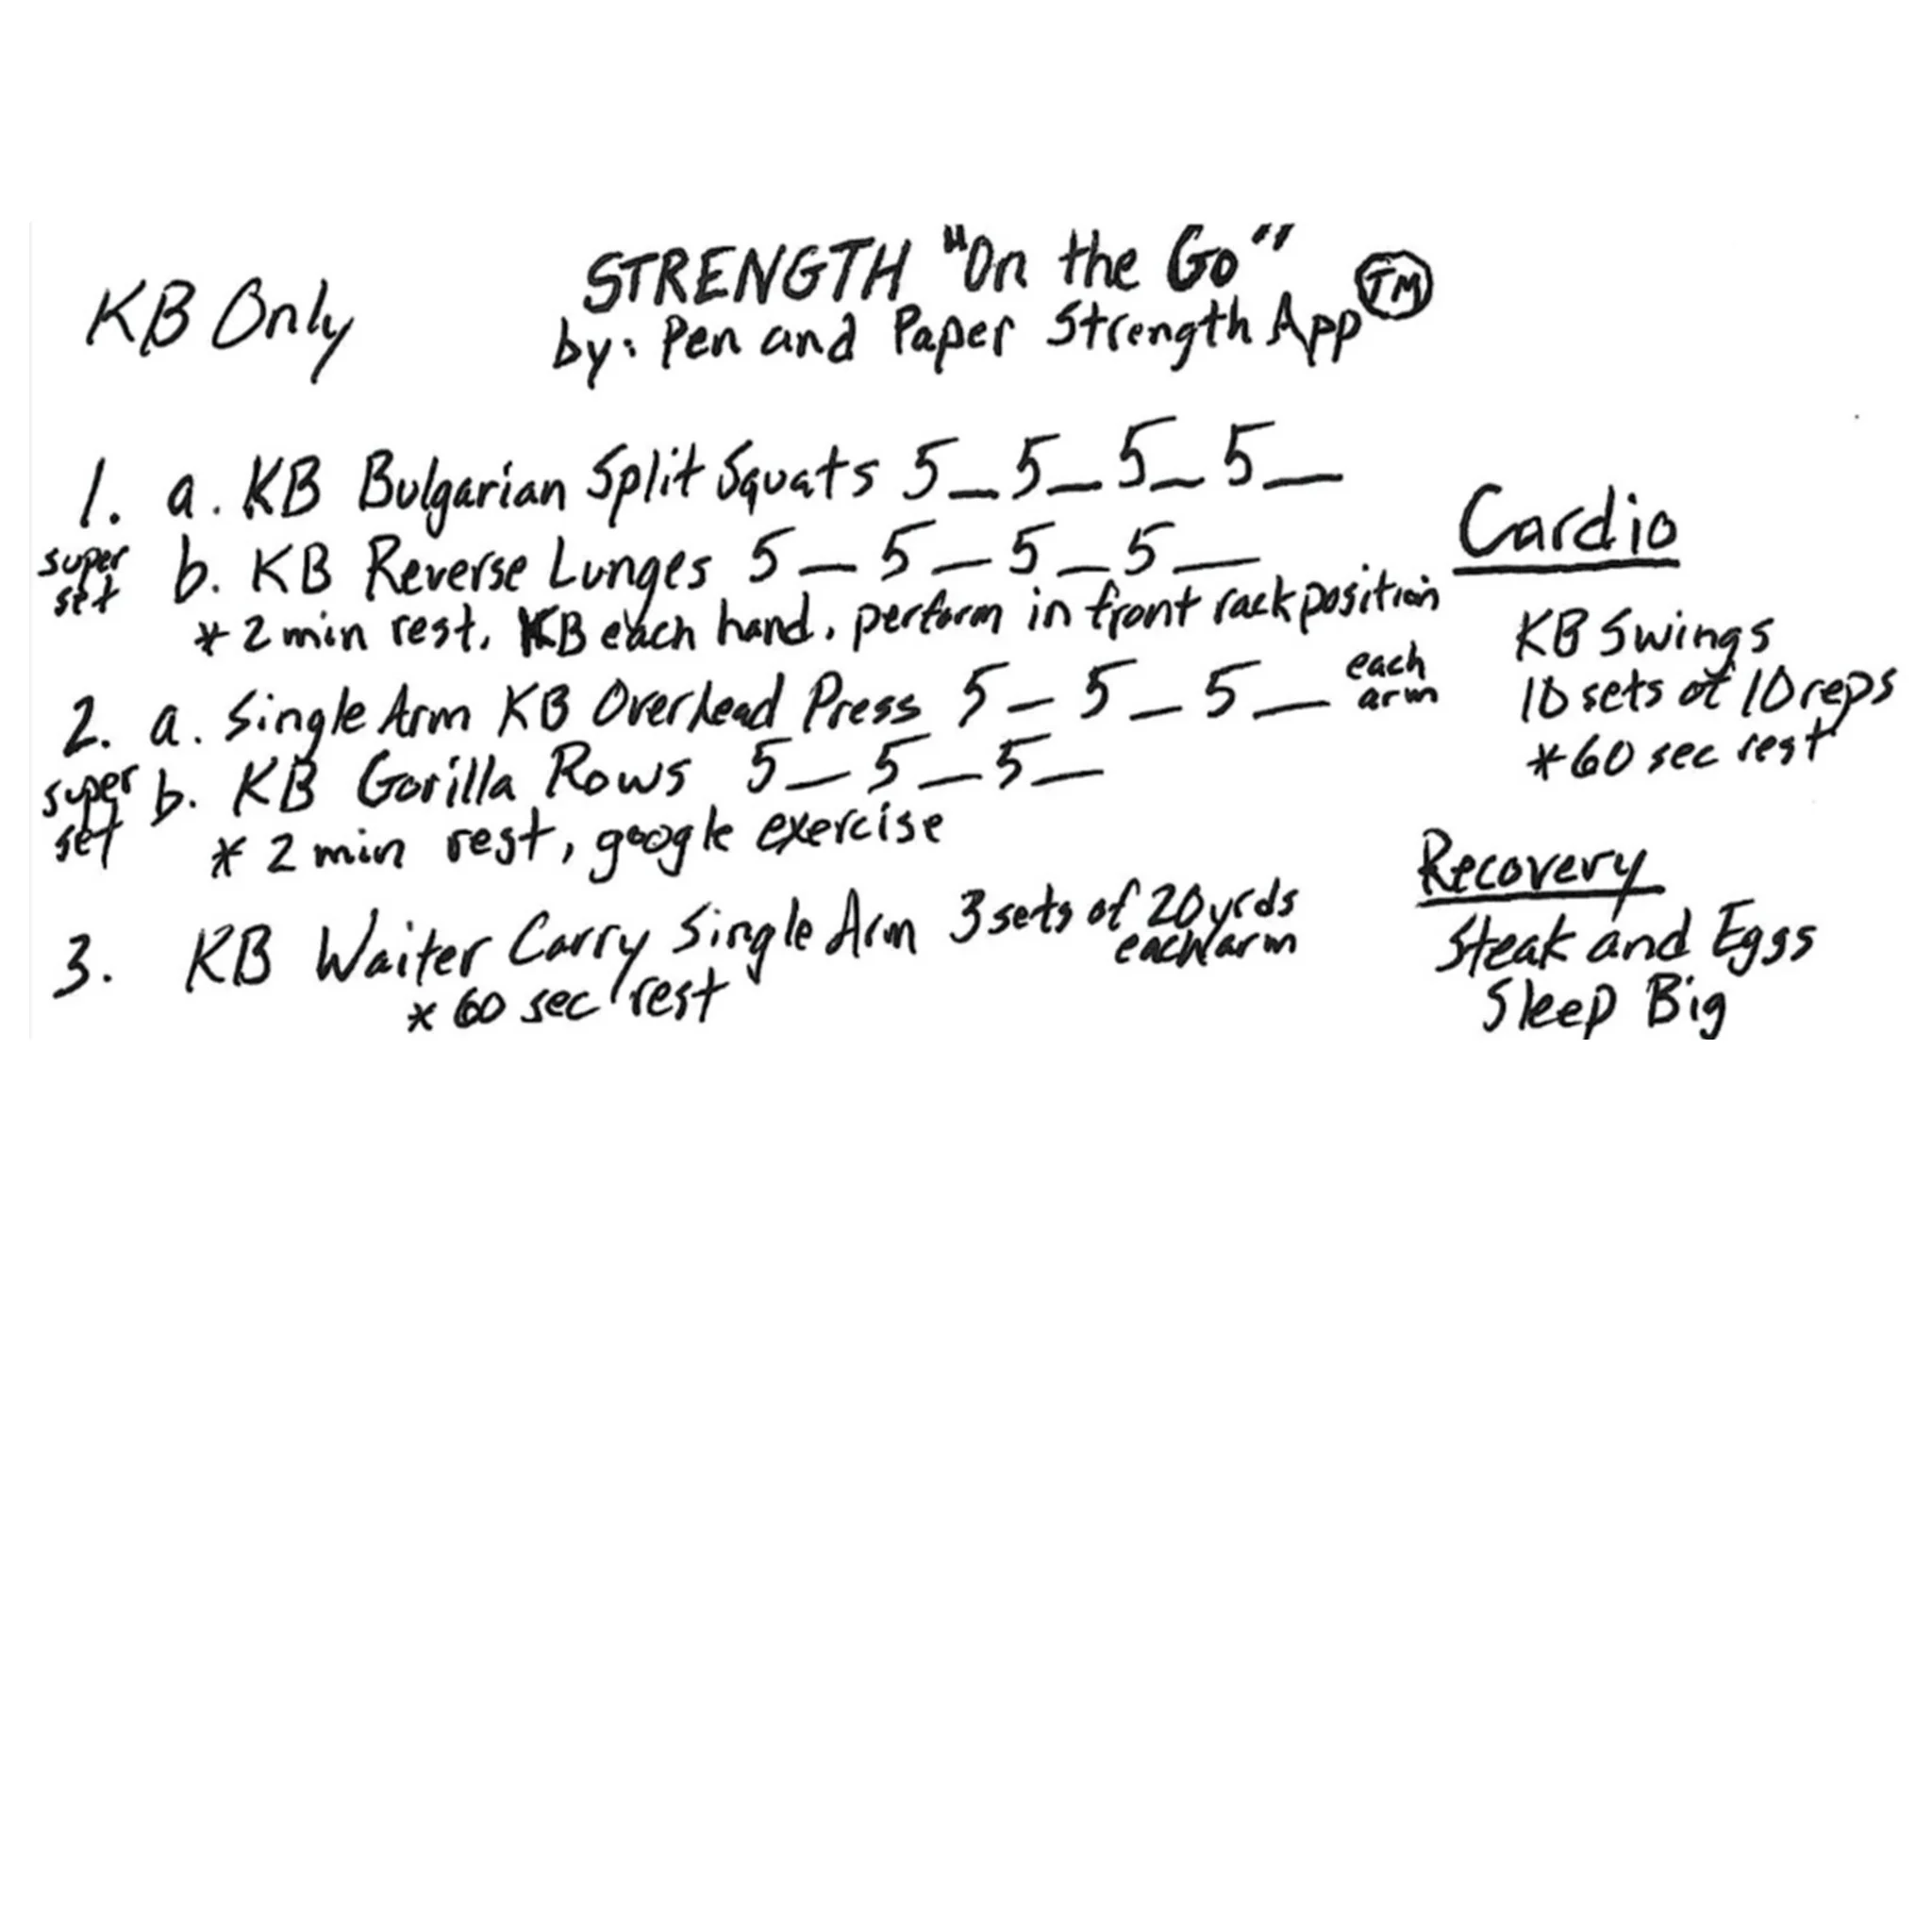 KB Only
STRENGTH "On the Go"
by: Pen and Paper Strength App TM
1. a. KB Bulgarian Split Squats 5_5_5_5_
super set
b. KB Reverse Lunges 5_5_5_5_
* 2 min rest, KB each hand, perform in front rack position
2. a. Single Arm KB Overhead Press 5_5_5_ each arm
super set
b. KB Gorilla Rows 5_5_5_
* 2 min rest, google exercise
3. KB Waiter Carry Single Arm 3 sets of 20 yrds each arm
* 60 sec rest
Cardio
KB Swings
10 sets of 10 reps
* 60 sec rest
Recovery
Steak and Eggs
Sleep Big